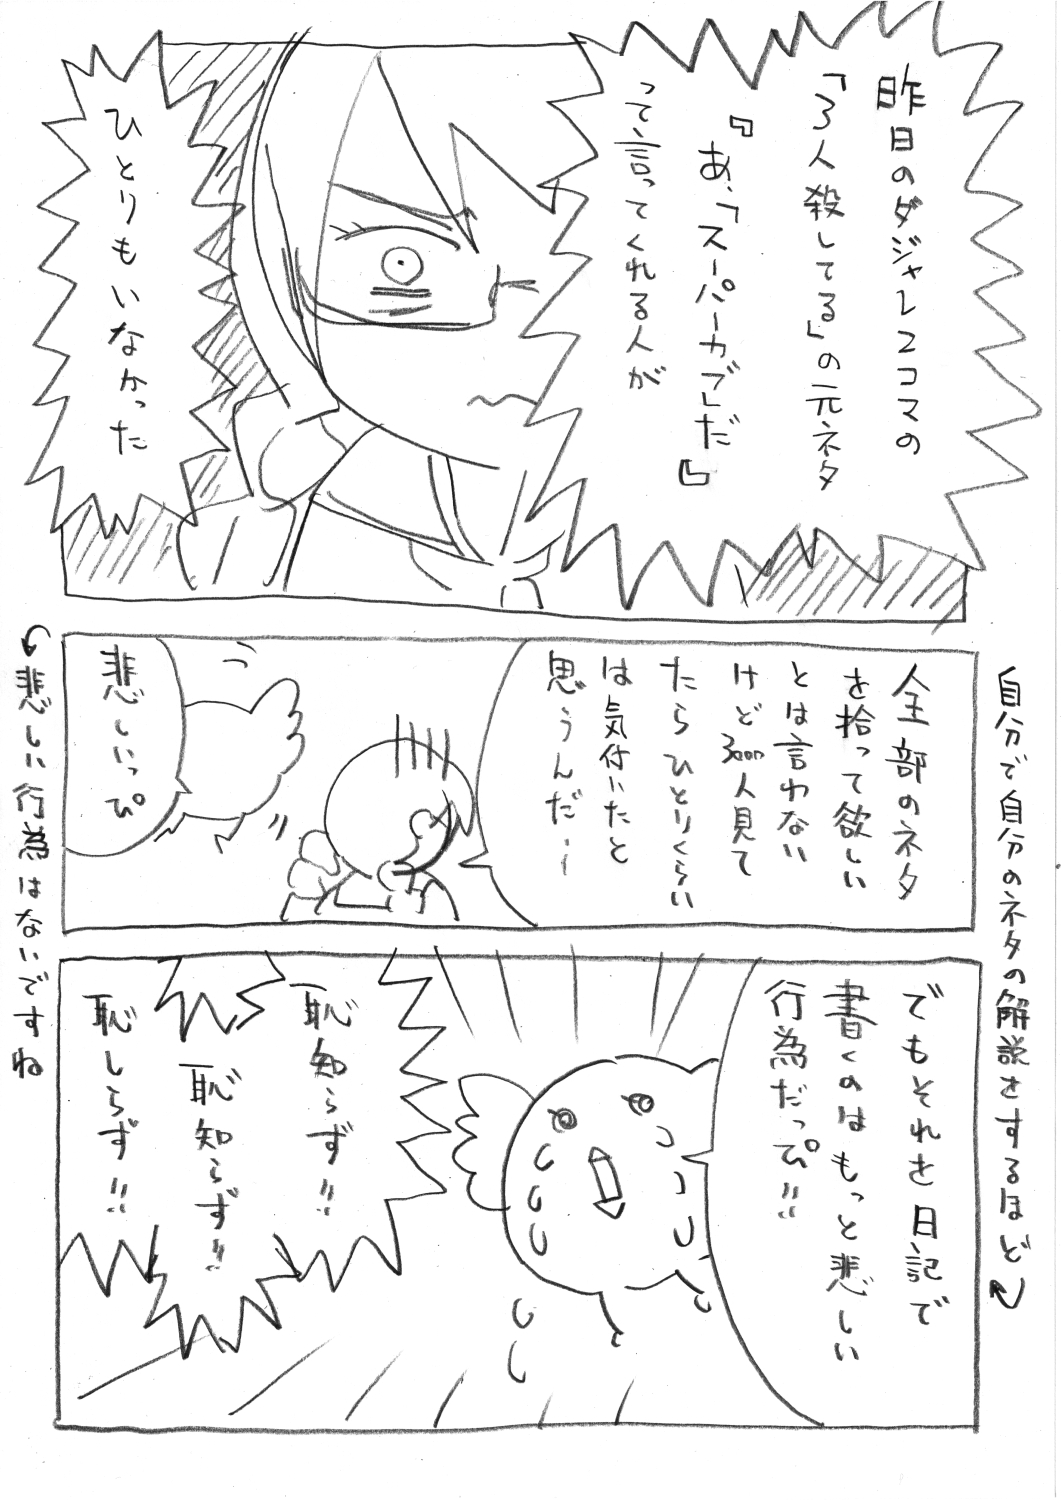 昨日のダジャレ2コマの
「3人殺してる」の元ネタ
『あ、「スーパーカブ」だ』
って言ってくれる人が
ひとりもいなかった
全部のネタ
を拾って欲しい
とは言わない
けど3000人見て
たらひとりくらい
は気付いたと
思うんだ…
悲しいっぴ
でもそれを日記で
書くのはもっと悲しい
行為だっぴ!!
恥知らず!!
恥知らず!!
恥しらず!!
自分で自分のネタの解説をするほど
悲しい行為はないですね